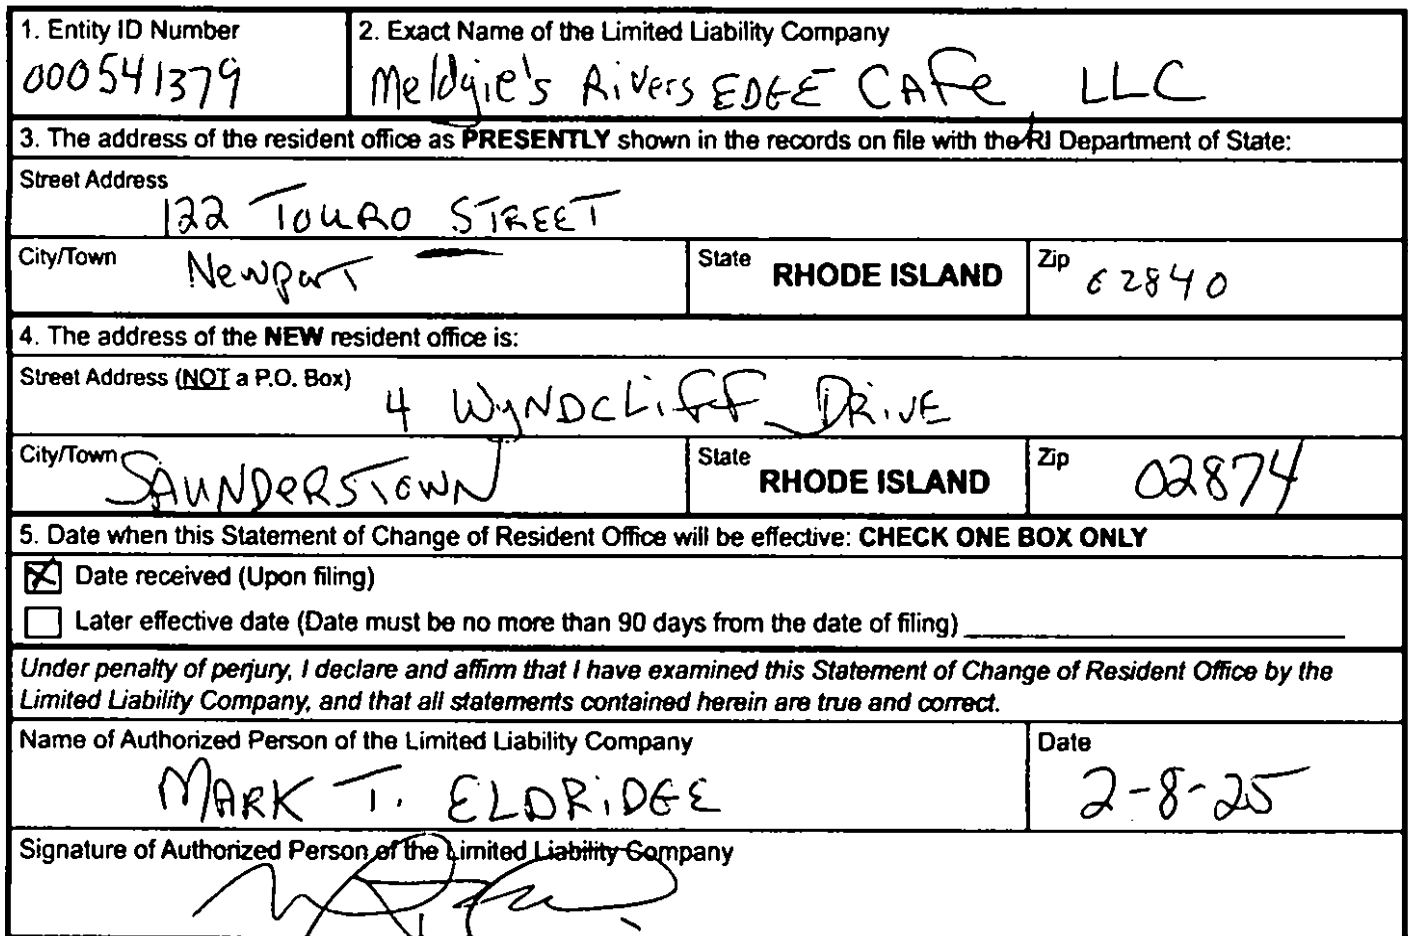 1. Entity ID Number
000541379
2. Exact Name of the Limited Liability Company
Meldgie's Rivers EDGE CAFe, LLC
3. The address of the resident office as PRESENTLY shown in the records on file with the RI Department of State:
Street Address
122 TOURO STREET
City/Town
Newport
State RHODE ISLAND
Zip 02840
4. The address of the NEW resident office is:
Street Address (NOT a P.O. Box)
4 WyNDCLiFF DRiVE
City/Town
SAUNDERSTOWN
State RHODE ISLAND
Zip 02874
5. Date when this Statement of Change of Resident Office will be effective: CHECK ONE BOX ONLY
Date received (Upon filing)
Later effective date (Date must be no more than 90 days from the date of filing)
Under penalty of perjury, I declare and affirm that I have examined this Statement of Change of Resident Office by the
Limited Liability Company, and that all statements contained herein are true and correct.
Name of Authorized Person of the Limited Liability Company
MARK T. ELDRiDGE
Date
2-8-25
Signature of Authorized Person of the Limited Liability Company